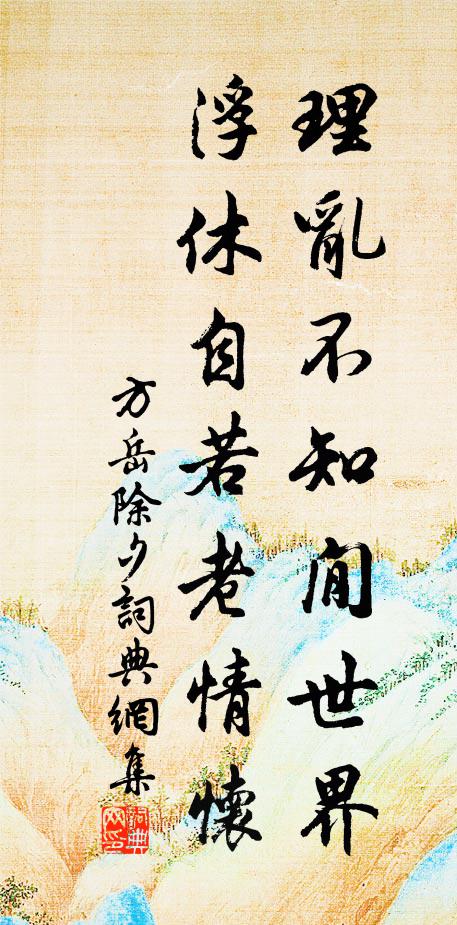 理亂不知閒世界
浮休自若老情懷
方岳除夕詞典網集
詞典網印